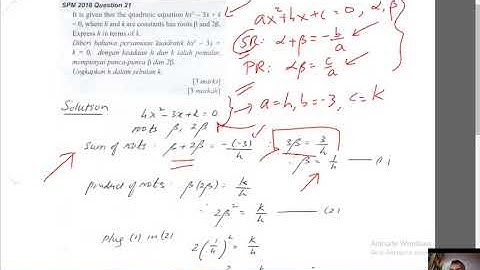 SPM 2016 Question 21
It is given that the quadratic equation hx² – 3x + k
= 0, where h and k are constants has roots β and 2β.
Express h in terms of k.
Diberi bahawa persamaan kuadratik hx² – 3x +
k = 0, dengan keadaan h dan k ialah pemalar,
mempunyai punca-punca β dan 2β.
Ungkapkan h dalam sebutan k.
[3 marks]
[3 markah]
ax²+bx+c=0, α, β
SR: α+β = -b/a
PR: αβ = c/a
→ a=h, b=-3, c=k
Solution
hx²-3x+k=0
roots β, 2β
sum of roots: β+2β = -(-3)/h ∴ 3β = 3/h
∴ β = 1/h —— (1)
product of roots: β(2β) = k/h
∴ 2β² = k/h —— (2)
plug (1) in (2) 2(1/h)² = k/h
Activate Windows